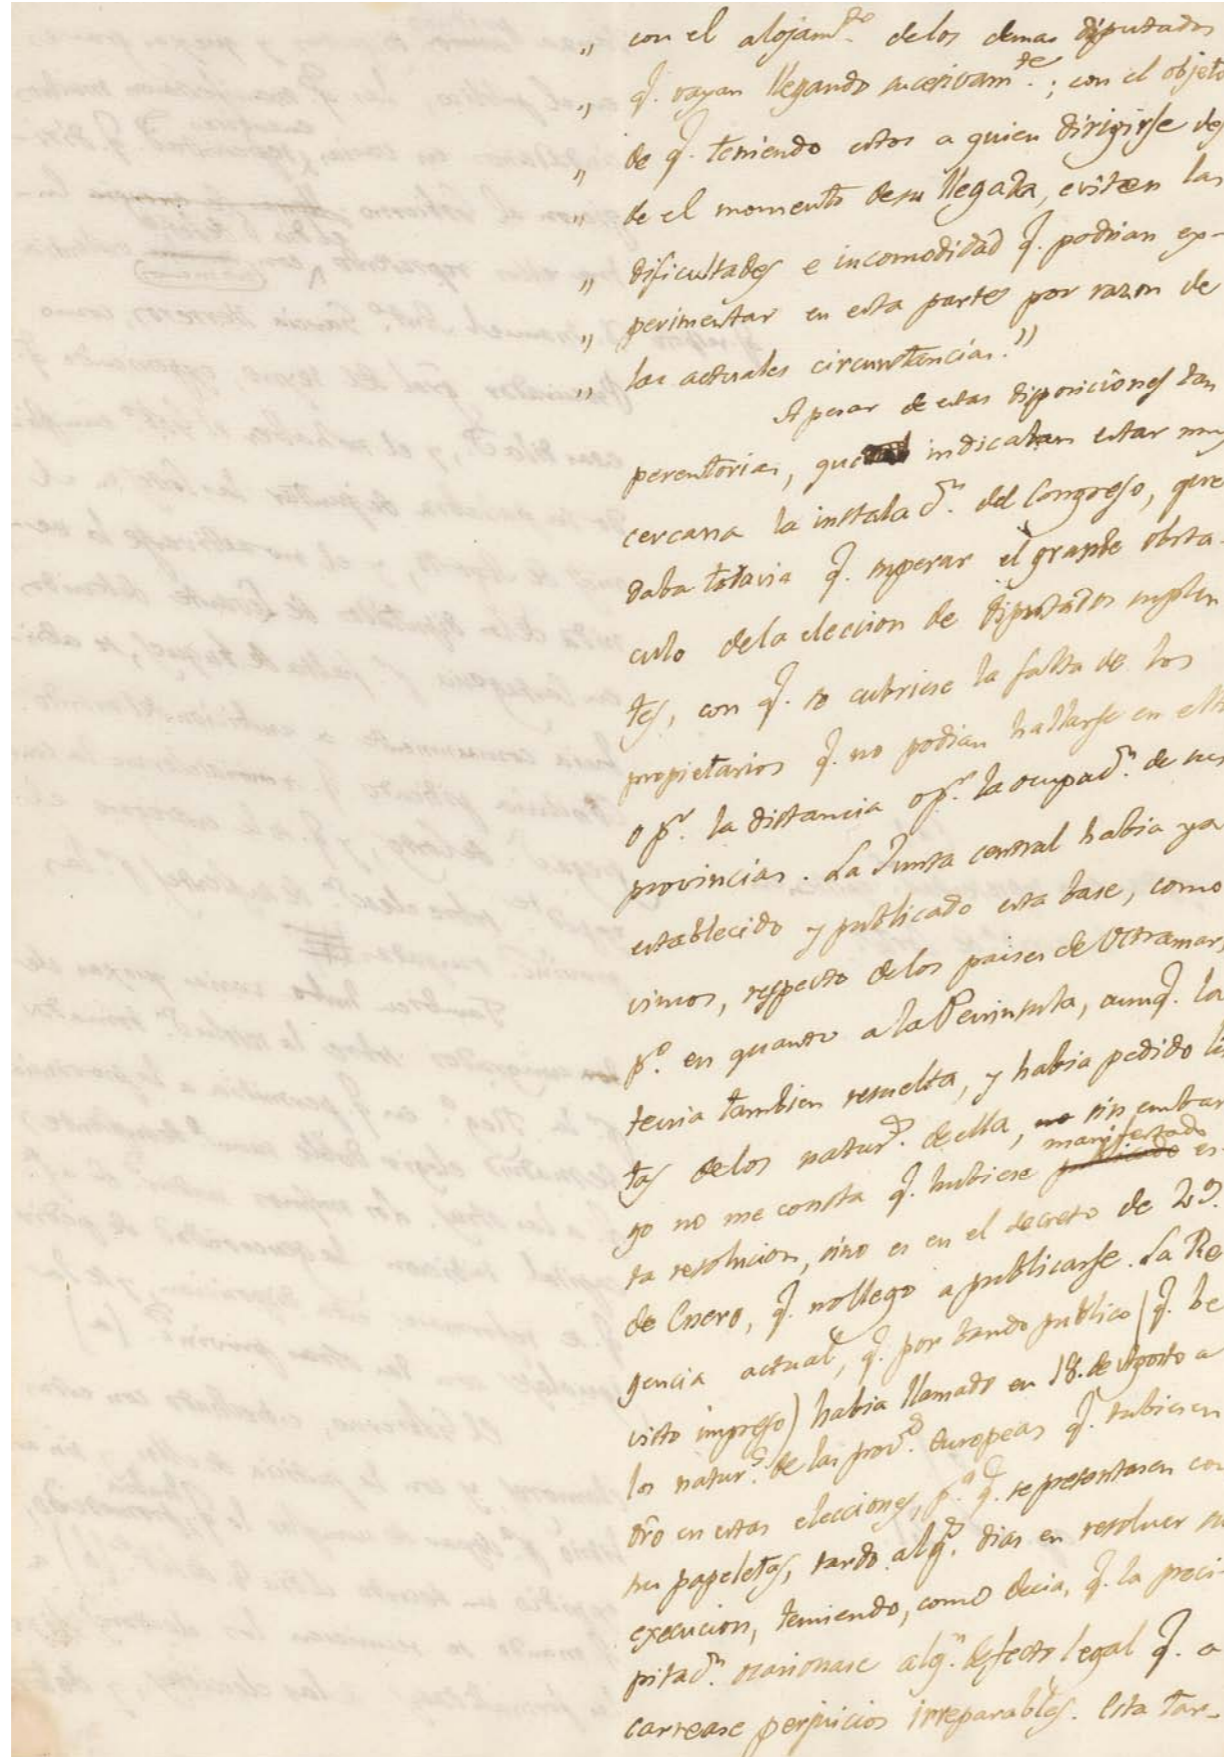 „ con el alojam.to delos demas diputados
„ q. vayan llegando sucesivam.te; con el objeto
„ de q. teniendo estos a quien dirigirse des
„ de el momento desu llegada, eviten las
„ dificultades e incomodidad q. podrian ex-
„ perimentar en esta parte por razon de
„ las actuales circunstancias."
Apesar de estas disposiciones tan
perentorias, que indicaban estar muy
cercana la instalac.n del Congreso, que
daba todavia q. superar el grande obsta-
culo dela eleccion de diputados suplen
tes, con q. se cubriese la falta de los
propietarios q. no podian hallarse en ellas
o p.r la distancia o p.r la ocupac.n de sus
provincias. La Junta central habia ya
establecido y publicado esta base, como
vimos, respecto delos paises de Ultramar,
p.o en quanto a la Peninsula, aunq. la
tenia tambien resuelta, y habia pedido lis
tas delos natur.s de ella, no sin embar
go no me consta q. hubiese publicado manifestado es-
ta resolucion, sino es en el decreto de 29.
de Enero, q. no llego a publicarse. La Re
gencia actual, q. por bando publico (q. he
visto impreso) habia llamado en 18. de Agosto a
los natur.s de las prov.s europeas q. tubiesen
dro en estas elecciones, p.a q. se presentasen con
sus papeletas, tardo alg.s dias en resolver su
execucion, temiendo, como decia, q. la preci-
pitac.n ocasionase alg.n defecto legal q. a
carrease perjuicios irreparables. Esta tar-